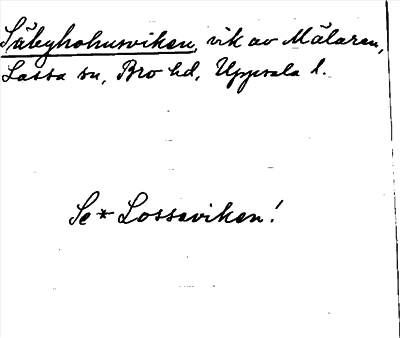 Säbyholmsviken, vik av Mälaren,
Lassa sn, Bro hd, Uppsala l.
Se * Lossaviken!